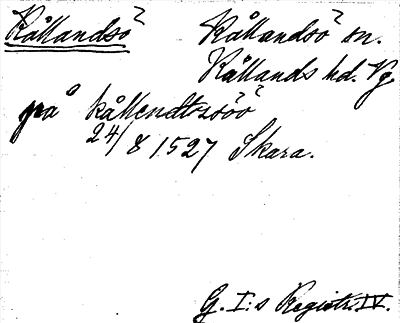 Kållandsö Kållandsö sn.
Kållands hd. Vg.
på kållendtzsöö
24/8 1527 Skara.
G. I:s Registr. IV.